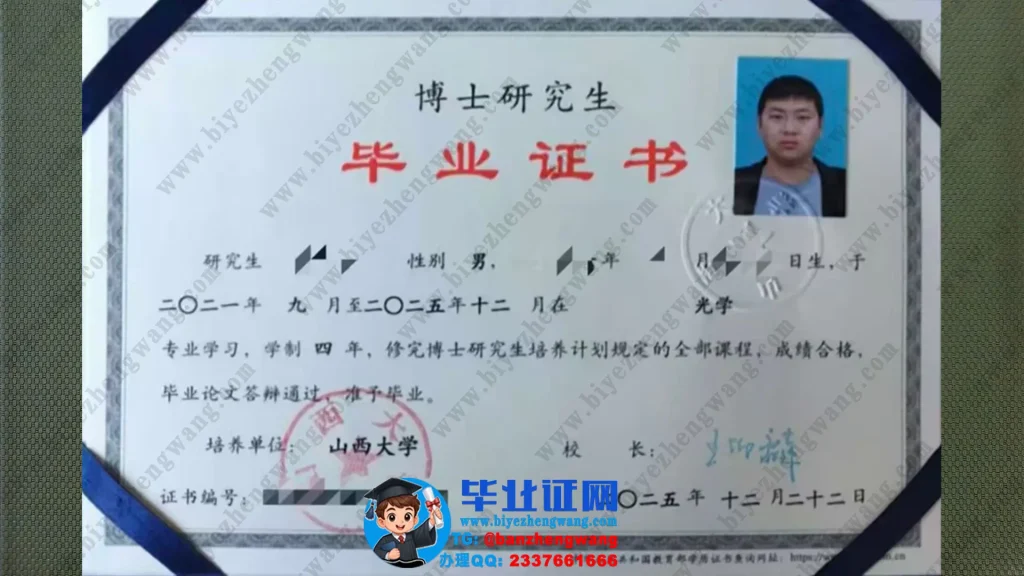 博士研究生
毕业证书
研究生 性别 男， 年 月 日生，于
二〇二一年 九 月至二〇二五年十二 月在 光学
专业学习，学制 四 年，修完博士研究生培养计划规定的全部课程，成绩合格，
毕业论文答辩通过，准予毕业。
培养单位： 山西大学 校 长：
西大
证书编号： 〇二五年 十二月二十二日
毕业证网
www.biyezhengwang.com
TG: @banzhengwang
办理QQ: 2337661666
共和国教育部学历证书查询网址：
www.biyezhengwang.com